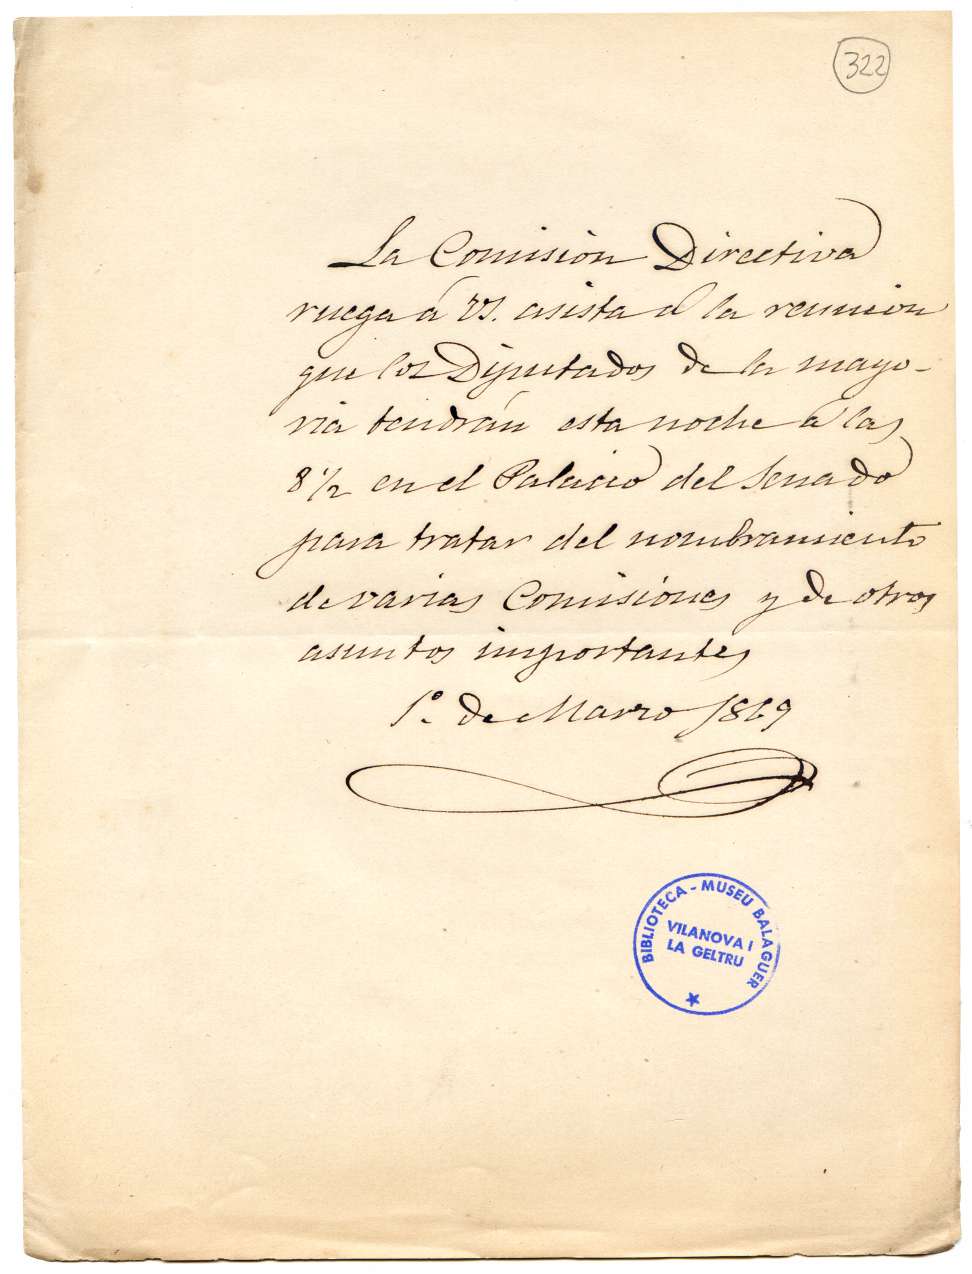 322
La Comisión Directiva
ruega á VS. asista á la reunion
que los Diputados de la mayo-
ria tendrán esta noche á las
8 1/2 en el Palacio del Senado
para tratar del nombramiento
de varias Comisiones y de otros
asuntos importantes
1º de Marzo 1869
BIBLIOTECA - MUSEU BALAGUER
VILANOVA I
LA GELTRU